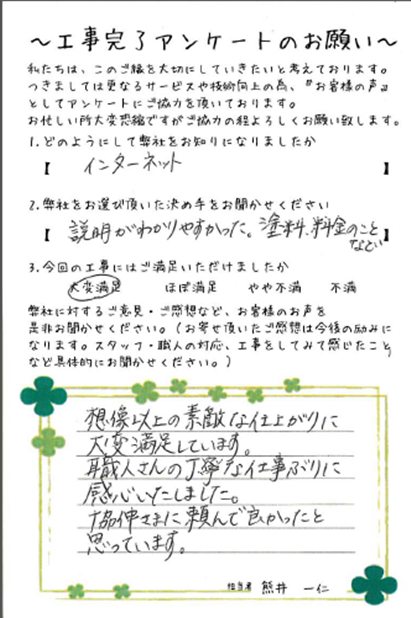 ～工事完了アンケートのお願い～
私たちは、このご縁を大切にしていきたいと考えております。
つきましては更なるサービスや技術向上の為、『お客様の声』
としてアンケートにご協力を頂いております。
お忙しい所大変恐縮ですがご協力の程よろしくお願い致します。
1.どのようにして弊社をお知りになりましたか
【 インターネット 】
2.弊社をお選び頂いた決め手をお聞かせください
【 説明がわかりやすかった。塗料、料金のことなど 】
3.今回の工事にはご満足いただけましたか
大変満足 ほぼ満足 やや不満 不満
弊社に対するご意見・ご感想など、お客様のお声を
是非お聞かせください。（お寄せ頂いたご感想は今後の励みに
なります。スタッフ・職人の対応、工事をしてみて感じたこと
など具体的にお聞かせください。）
想像以上の素敵な仕上がりに
大変満足しています。
職人さんの丁寧な仕事ぶりに
感心いたしました。
協伸さまに頼んで良かったと
思っています。
担当者 熊井 一仁